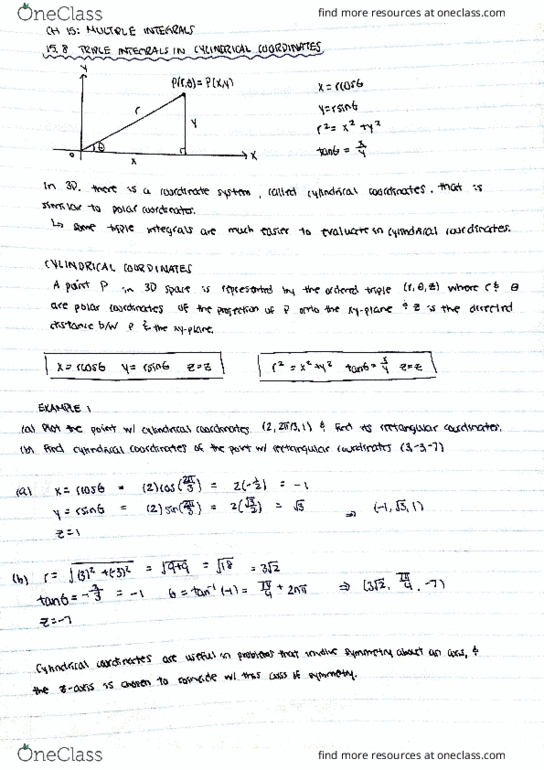 OneClass
find more resources at oneclass.com
CH 15: MULTIPLE INTEGRALS
15.8 TRIPLE INTEGRALS IN CYLINDRICAL COORDINATES
y
P(r,θ) = P(x,y)
r
y
θ
0
x
x
x = rcosθ
y = rsinθ
r² = x² + y²
tanθ = x/y
In 3D, there is a coordinate system, called cylindrical coordinates, that is
similar to polar coordinates.
↳ some triple integrals are much easier to evaluate in cylindrical coordinates.
CYLINDRICAL COORDINATES
A point P in 3D space is represented by the ordered triple (r, θ, z) where r & θ
are polar coordinates of the projection of P onto the xy-plane & z is the directed
distance b/w P & the xy-plane.
x = rcosθ y = rsinθ z = z
r² = x² + y² tanθ = x/y z = z
EXAMPLE 1
(a) Plot the point w/ cylindrical coordinates (2, 2π/3, 1) & find its rectangular coordinates.
(b) Find cylindrical coordinates of the point w/ rectangular coordinates (3,-3,-7)
(a) x = rcosθ = (2)cos(2π/3) = 2(-1/2) = -1
y = rsinθ = (2)sin(2π/3) = 2(√3/2) = √3 ⇒ (-1, √3, 1)
z = 1
(b) r = √(3)² + (-3)² = √9+9 = √18 = 3√2
tanθ = -3/3 = -1 θ = tan⁻¹(-1) = 7π/4 + 2nπ ⇒ (3√2, 7π/4, -7)
z = -7
Cylindrical coordinates are useful in problems that involve symmetry about an axis, &
the z-axis is chosen to coincide w/ this axis of symmetry.
OneClass
find more resources at oneclass.com